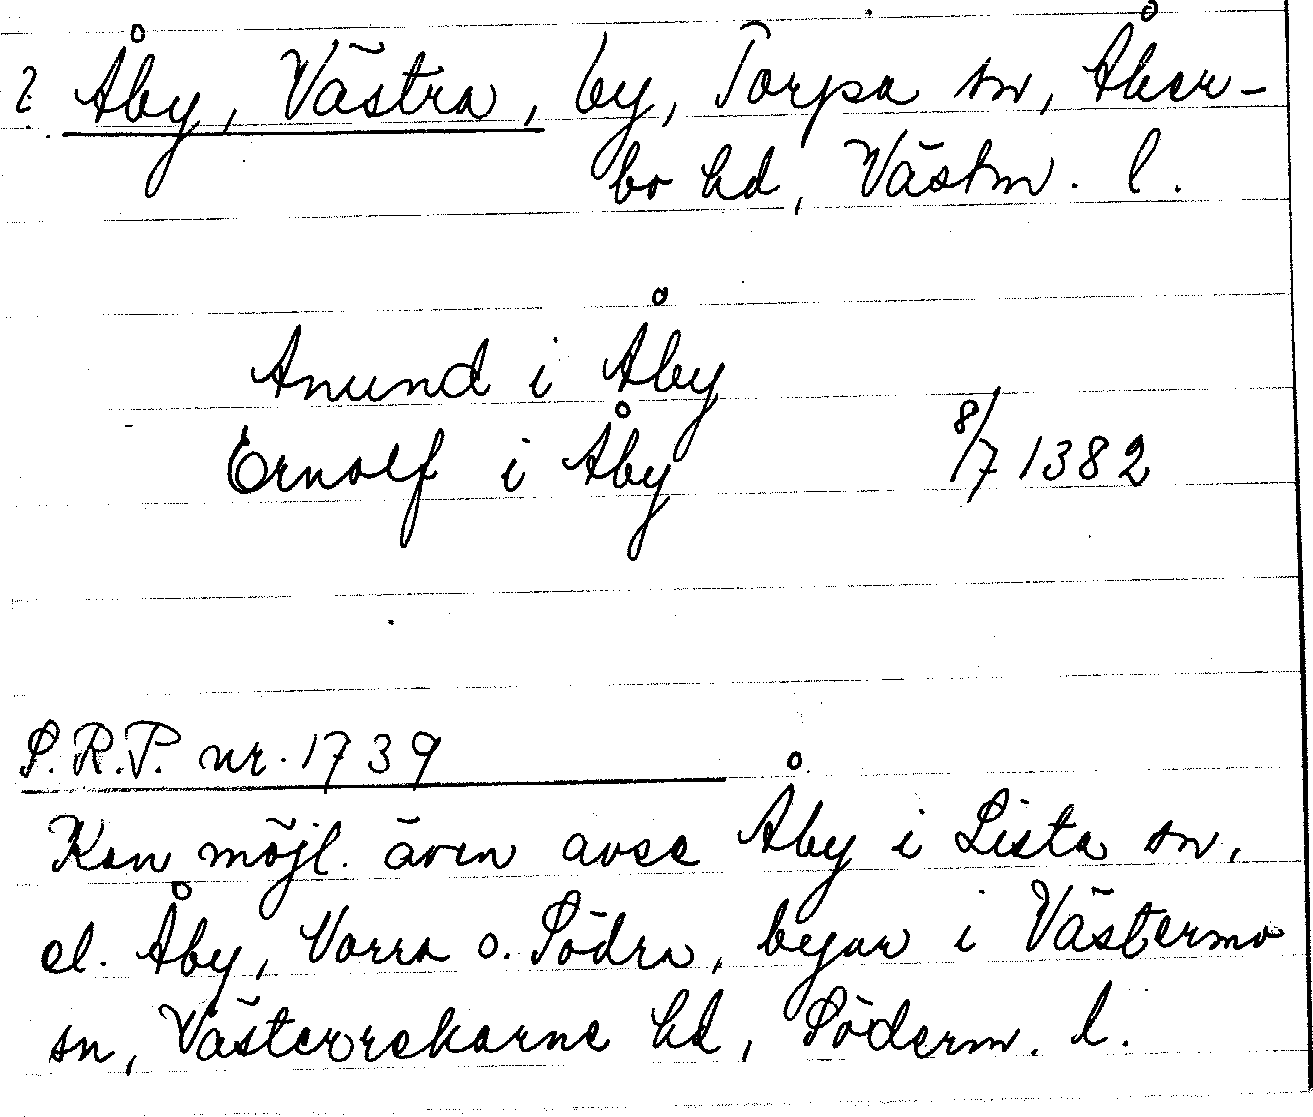 ? Åby, Västra, by, Torpa sn, Åker-
bo hd, Västm. l.
Anund i Åby
Ernolf i Åby 8/7 1382
S.R.P. nr. 1739
Kan möjl. även avse Åby i Lista sn,
el. Åby, Norra o. Södra, byar i Västermo
sn, Västerrekarne hd, Söderm. l.